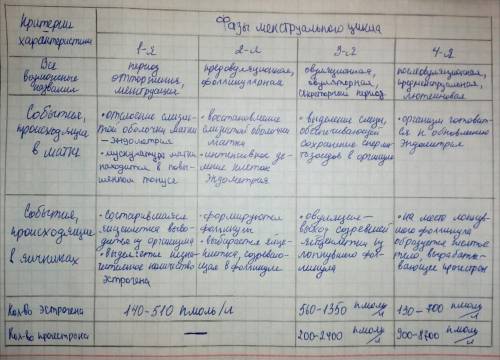 Критерии
характеристики
Фазы менструального цикла
1-я
2-я
3-я
4-я
Все
возможные
названия
период
отторжения,
менструация
предовуляционная,
фолликулярная
овуляционная,
овуляторная,
секреторный период
послеовуляционная,
предменструальная,
лютеиновая
События,
происходящие
в матке
• отслоение слизис-
той оболочки матки
– эндометрия
• мускулатура матки
находится в повы-
шенном тонусе
• восстановление
слизистой оболочки
матки
• интенсивное де-
ление клеток
эндометрия
• выделение слизи,
обеспечивающей
сохранение сперма-
тозоидов в организме
• организм готовит-
ся к обновлению
эндометрия
События,
происходящие
в яичниках
• состарившаяся
яйцеклетка выво-
дится из организма
• выделяется незна-
чительное количество
эстрогена
• формируются
фолликулы
• выбирается яйце-
клетка, созреваю-
щая в фолликуле
• овуляция –
выход созревшей
яйцеклетки из
лопнувшего фол-
ликула
• на месте лопнув-
шего фолликула
образуется желтое
тело, вырабаты-
вающее прогестерон
Кол-во эстрогена
140-510 пмоль/л
560-1350 пмоль/л
130-700 пмоль/л
Кол-во прогестерона
—
200-2400 пмоль/л
900-8700 пмоль/л